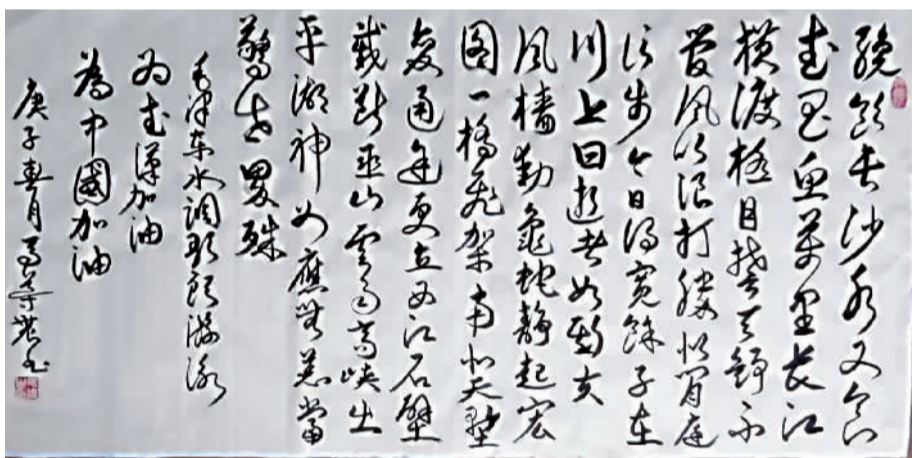 纔飲长沙水又食
武昌鱼萬里长江
横渡極目楚天舒不
管风吹浪打胜似闲庭
信步今日得宽馀子在
川上曰逝者如斯夫
风樯动龟蛇静起宏
图一橋飞架南北天堑
变通途更立西江石壁
截断巫山雲雨高峡出
平湖神女應無恙當
驚世界殊
毛泽东水调歌头游泳
为武漢加油
為中國加油
庚子春月
书